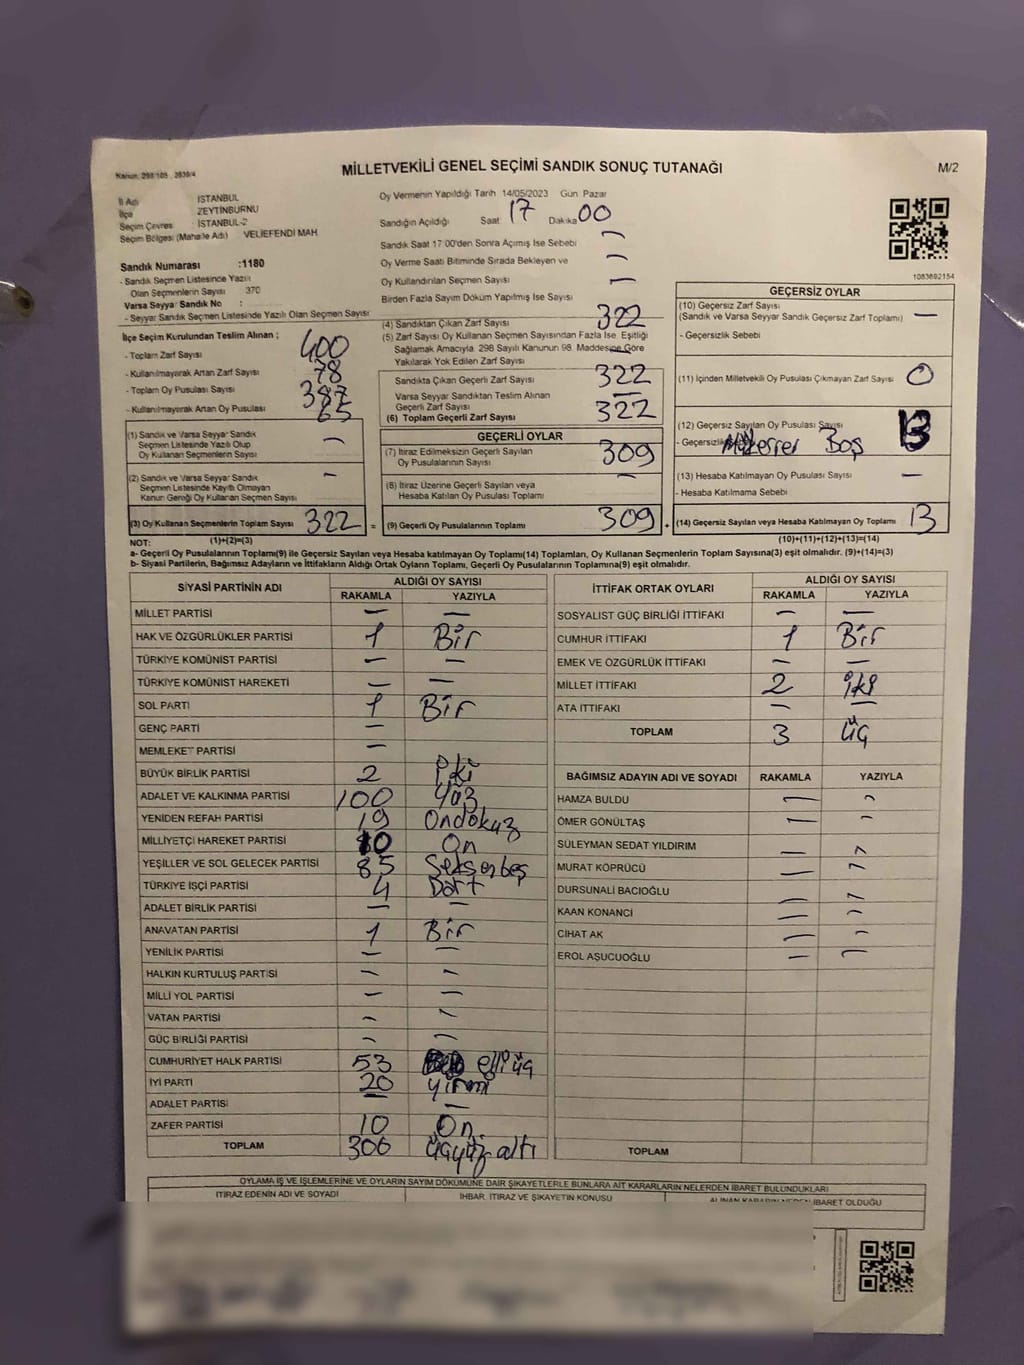 Kanun: 298/105 , 2839/4
MİLLETVEKİLİ GENEL SEÇİMİ SANDIK SONUÇ TUTANAĞI
M/2
İl Adı İSTANBUL
İlçe ZEYTİNBURNU
Seçim Çevres İSTANBUL-2
Seçim Bölgesi (Mahalle Adı) VELİEFENDİ MAH
Sandık Numarası :1180
- Sandık Seçmen Listesinde Yazılı
Olan Seçmenlerin Sayısı 370
Varsa Seyyar Sandık No :
- Seyyar Sandık Seçmen Listesinde Yazılı Olan Seçmen Sayısı
Oy Vermenin Yapıldığı Tarih 14/05/2023 Gün Pazar
Sandığın Açıldığı Saat 17 Dakika 00
Sandık Saat 17:00'den Sonra Açılmış İse Sebebi —
Oy Verme Saati Bitiminde Sırada Bekleyen ve —
Oy Kullandırılan Seçmen Sayısı —
Birden Fazla Sayım Döküm Yapılmış İse Sayısı —
1083692154
İlçe Seçim Kurulundan Teslim Alınan ;
- Toplam Zarf Sayısı 400
- Kullanılmayarak Artan Zarf Sayısı 78
- Toplam Oy Pusulası Sayısı 387
- Kullanılmayarak Artan Oy Pusulası 65
(1) Sandık ve Varsa Seyyar Sandık
Seçmen Listesinde Yazılı Olup
Oy Kullanan Seçmenlerin Sayısı —
(2) Sandık ve Varsa Seyyar Sandık
Seçmen Listesinde Kayıtlı Olmayan
Kanun Gereği Oy Kullanan Seçmen Sayısı —
(3) Oy Kullanan Seçmenlerin Toplam Sayısı 322 =
(4) Sandıktan Çıkan Zarf Sayısı 322
(5) Zarf Sayısı Oy Kullanan Seçmen Sayısından Fazla İse, Eşitliği
Sağlamak Amacıyla 298 Sayılı Kanunun 98. Maddesine Göre
Yakılarak Yok Edilen Zarf Sayısı —
Sandıkta Çıkan Geçerli Zarf Sayısı 322
Varsa Seyyar Sandıktan Teslim Alınan
Geçerli Zarf Sayısı —
(6) Toplam Geçerli Zarf Sayısı 322
GEÇERLİ OYLAR
(7) İtiraz Edilmeksizin Geçerli Sayılan
Oy Pusulalarının Sayısı 309
(8) İtiraz Üzerine Geçerli Sayılan veya
Hesaba Katılan Oy Pusulası Toplamı —
(9) Geçerli Oy Pusulalarının Toplamı 309 +
GEÇERSİZ OYLAR
(10) Geçersiz Zarf Sayısı
(Sandık ve Varsa Seyyar Sandık Geçersiz Zarf Toplamı) —
- Geçersizlik Sebebi
(11) İçinden Milletvekili Oy Pusulası Çıkmayan Zarf Sayısı 0
(12) Geçersiz Sayılan Oy Pusulası Sayısı 13
- Geçersizlik Mükerrer Boş
(13) Hesaba Katılmayan Oy Pusulası Sayısı —
- Hesaba Katılmama Sebebi
(14) Geçersiz Sayılan veya Hesaba Katılmayan Oy Toplamı 13
NOT: (1)+(2)=(3) (10)+(11)+(12)+(13)=(14)
a- Geçerli Oy Pusulalarının Toplamı(9) ile Geçersiz Sayılan veya Hesaba katılmayan Oy Toplamı(14) Toplamları, Oy Kullanan Seçmenlerin Toplam Sayısına(3) eşit olmalıdır. (9)+(14)=(3)
b- Siyasi Partilerin, Bağımsız Adayların ve İttifakların Aldığı Ortak Oyların Toplamı, Geçerli Oy Pusulalarının Toplamına(9) eşit olmalıdır.
SİYASİ PARTİNİN ADI ALDIĞI OY SAYISI
RAKAMLA YAZIYLA
MİLLET PARTİSİ — —
HAK VE ÖZGÜRLÜKLER PARTİSİ 1 Bir
TÜRKİYE KOMÜNİST PARTİSİ — —
TÜRKİYE KOMÜNİST HAREKETİ — —
SOL PARTİ 1 Bir
GENÇ PARTİ —
MEMLEKET PARTİSİ —
BÜYÜK BİRLİK PARTİSİ 2 İki
ADALET VE KALKINMA PARTİSİ 100 Yüz
YENİDEN REFAH PARTİSİ 19 Ondokuz
MİLLİYETÇİ HAREKET PARTİSİ 10 On
YEŞİLLER VE SOL GELECEK PARTİSİ 85 Seksenbeş
TÜRKİYE İŞÇİ PARTİSİ 4 Dört
ADALET BİRLİK PARTİSİ — —
ANAVATAN PARTİSİ 1 Bir
YENİLİK PARTİSİ — —
HALKIN KURTULUŞ PARTİSİ — —
MİLLİ YOL PARTİSİ — —
VATAN PARTİSİ — —
GÜÇ BİRLİĞİ PARTİSİ — —
CUMHURİYET HALK PARTİSİ 53 elliüç
İYİ PARTİ 20 yirmi
ADALET PARTİSİ — —
ZAFER PARTİSİ 10 On
TOPLAM 306 üçyüz altı
İTTİFAK ORTAK OYLARI ALDIĞI OY SAYISI
RAKAMLA YAZIYLA
SOSYALİST GÜÇ BİRLİĞİ İTTİFAKI — —
CUMHUR İTTİFAKI 1 Bir
EMEK VE ÖZGÜRLÜK İTTİFAKI — —
MİLLET İTTİFAKI 2 iki
ATA İTTİFAKI — —
TOPLAM 3 üç
BAĞIMSIZ ADAYIN ADI VE SOYADI RAKAMLA YAZIYLA
HAMZA BULDU — —
ÖMER GÖNÜLTAŞ — —
SÜLEYMAN SEDAT YILDIRIM — —
MURAT KÖPRÜCÜ — —
DURSUNALİ BACIOĞLU — —
KAAN KONANCİ — —
CİHAT AK — —
EROL AŞUCUOĞLU — —
TOPLAM
OYLAMA İŞ VE İŞLEMLERİNE VE OYLARIN SAYIM DÖKÜMÜNE DAİR ŞİKAYETLERLE BUNLARA AİT KARARLARIN NELERDEN İBARET BULUNDUKLARI
İTİRAZ EDENİN ADI VE SOYADI İHBAR, İTİRAZ VE ŞİKAYETİN KONUSU ALINAN KARARIN NEDEN İBARET OLDUĞU